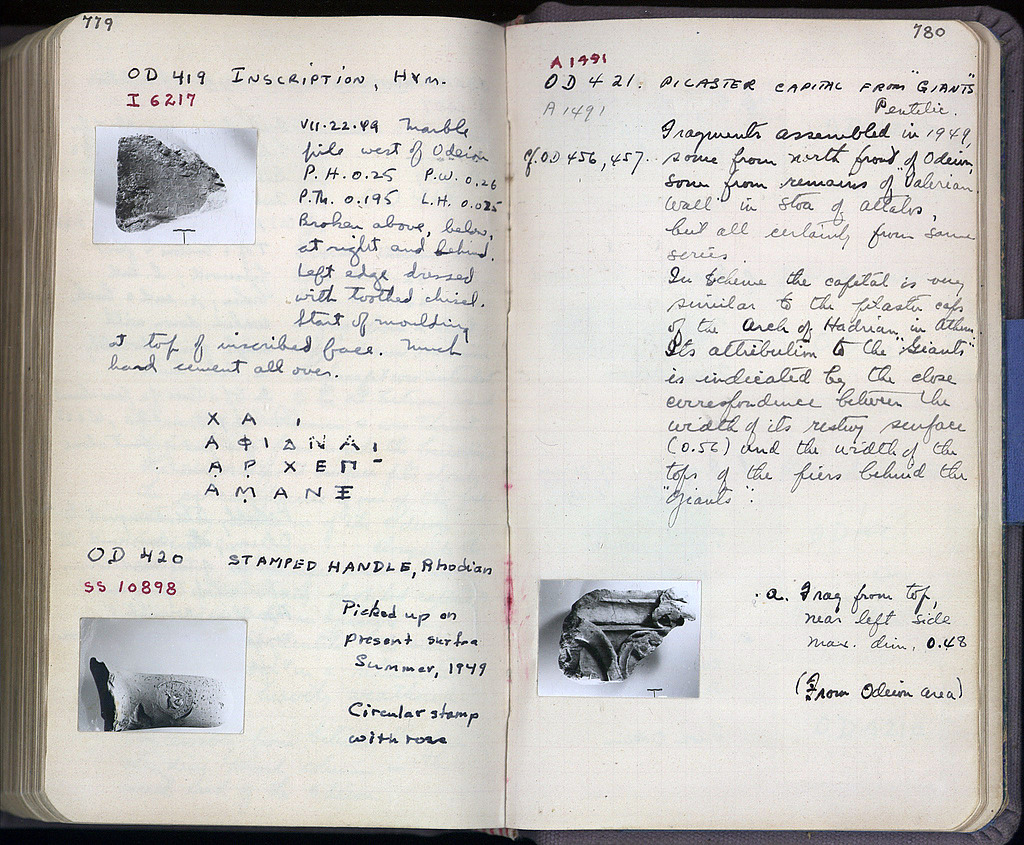 779
OD 419 INSCRIPTION, HYM.
I 6217
VII.22.49 Marble
pile west of Odeion
P.H. 0.25 P.W. 0.26
P.Th. 0.195 L.H. 0.025
Broken above, below,
at right and behind.
Left edge dressed
with toothed chisel.
Start of moulding
at top of inscribed face. Much
hard cement all over.
Χ Α Ι
Α Φ Ι Δ Ν Α Ι
Α Ρ Χ Ε Π
Α Μ Α Ν Ξ
OD 420 STAMPED HANDLE, Rhodian
SS 10898
Picked up on
present surface
Summer, 1949
Circular stamp
with rose
780
A 1491
OD 421. PILASTER CAPITAL FROM "GIANTS"
A 1491
Pentelic.
Fragments assembled in 1949,
cf. OD 456, 457. some from north front of Odeion,
some from remains of "Valerian
Wall" in Stoa of Attalos,
but all certainly from same
series.
In scheme the capital is very
similar to the pilaster caps
of the Arch of Hadrian in Athens.
Its attribution to the "Giants"
is indicated by the close
correspondence between the
width of its resting surface
(0.56) and the width of the
tops of the piers behind the
"Giants".
a. Frag from top,
near left side
max. dim. 0.48
(From Odeion area)